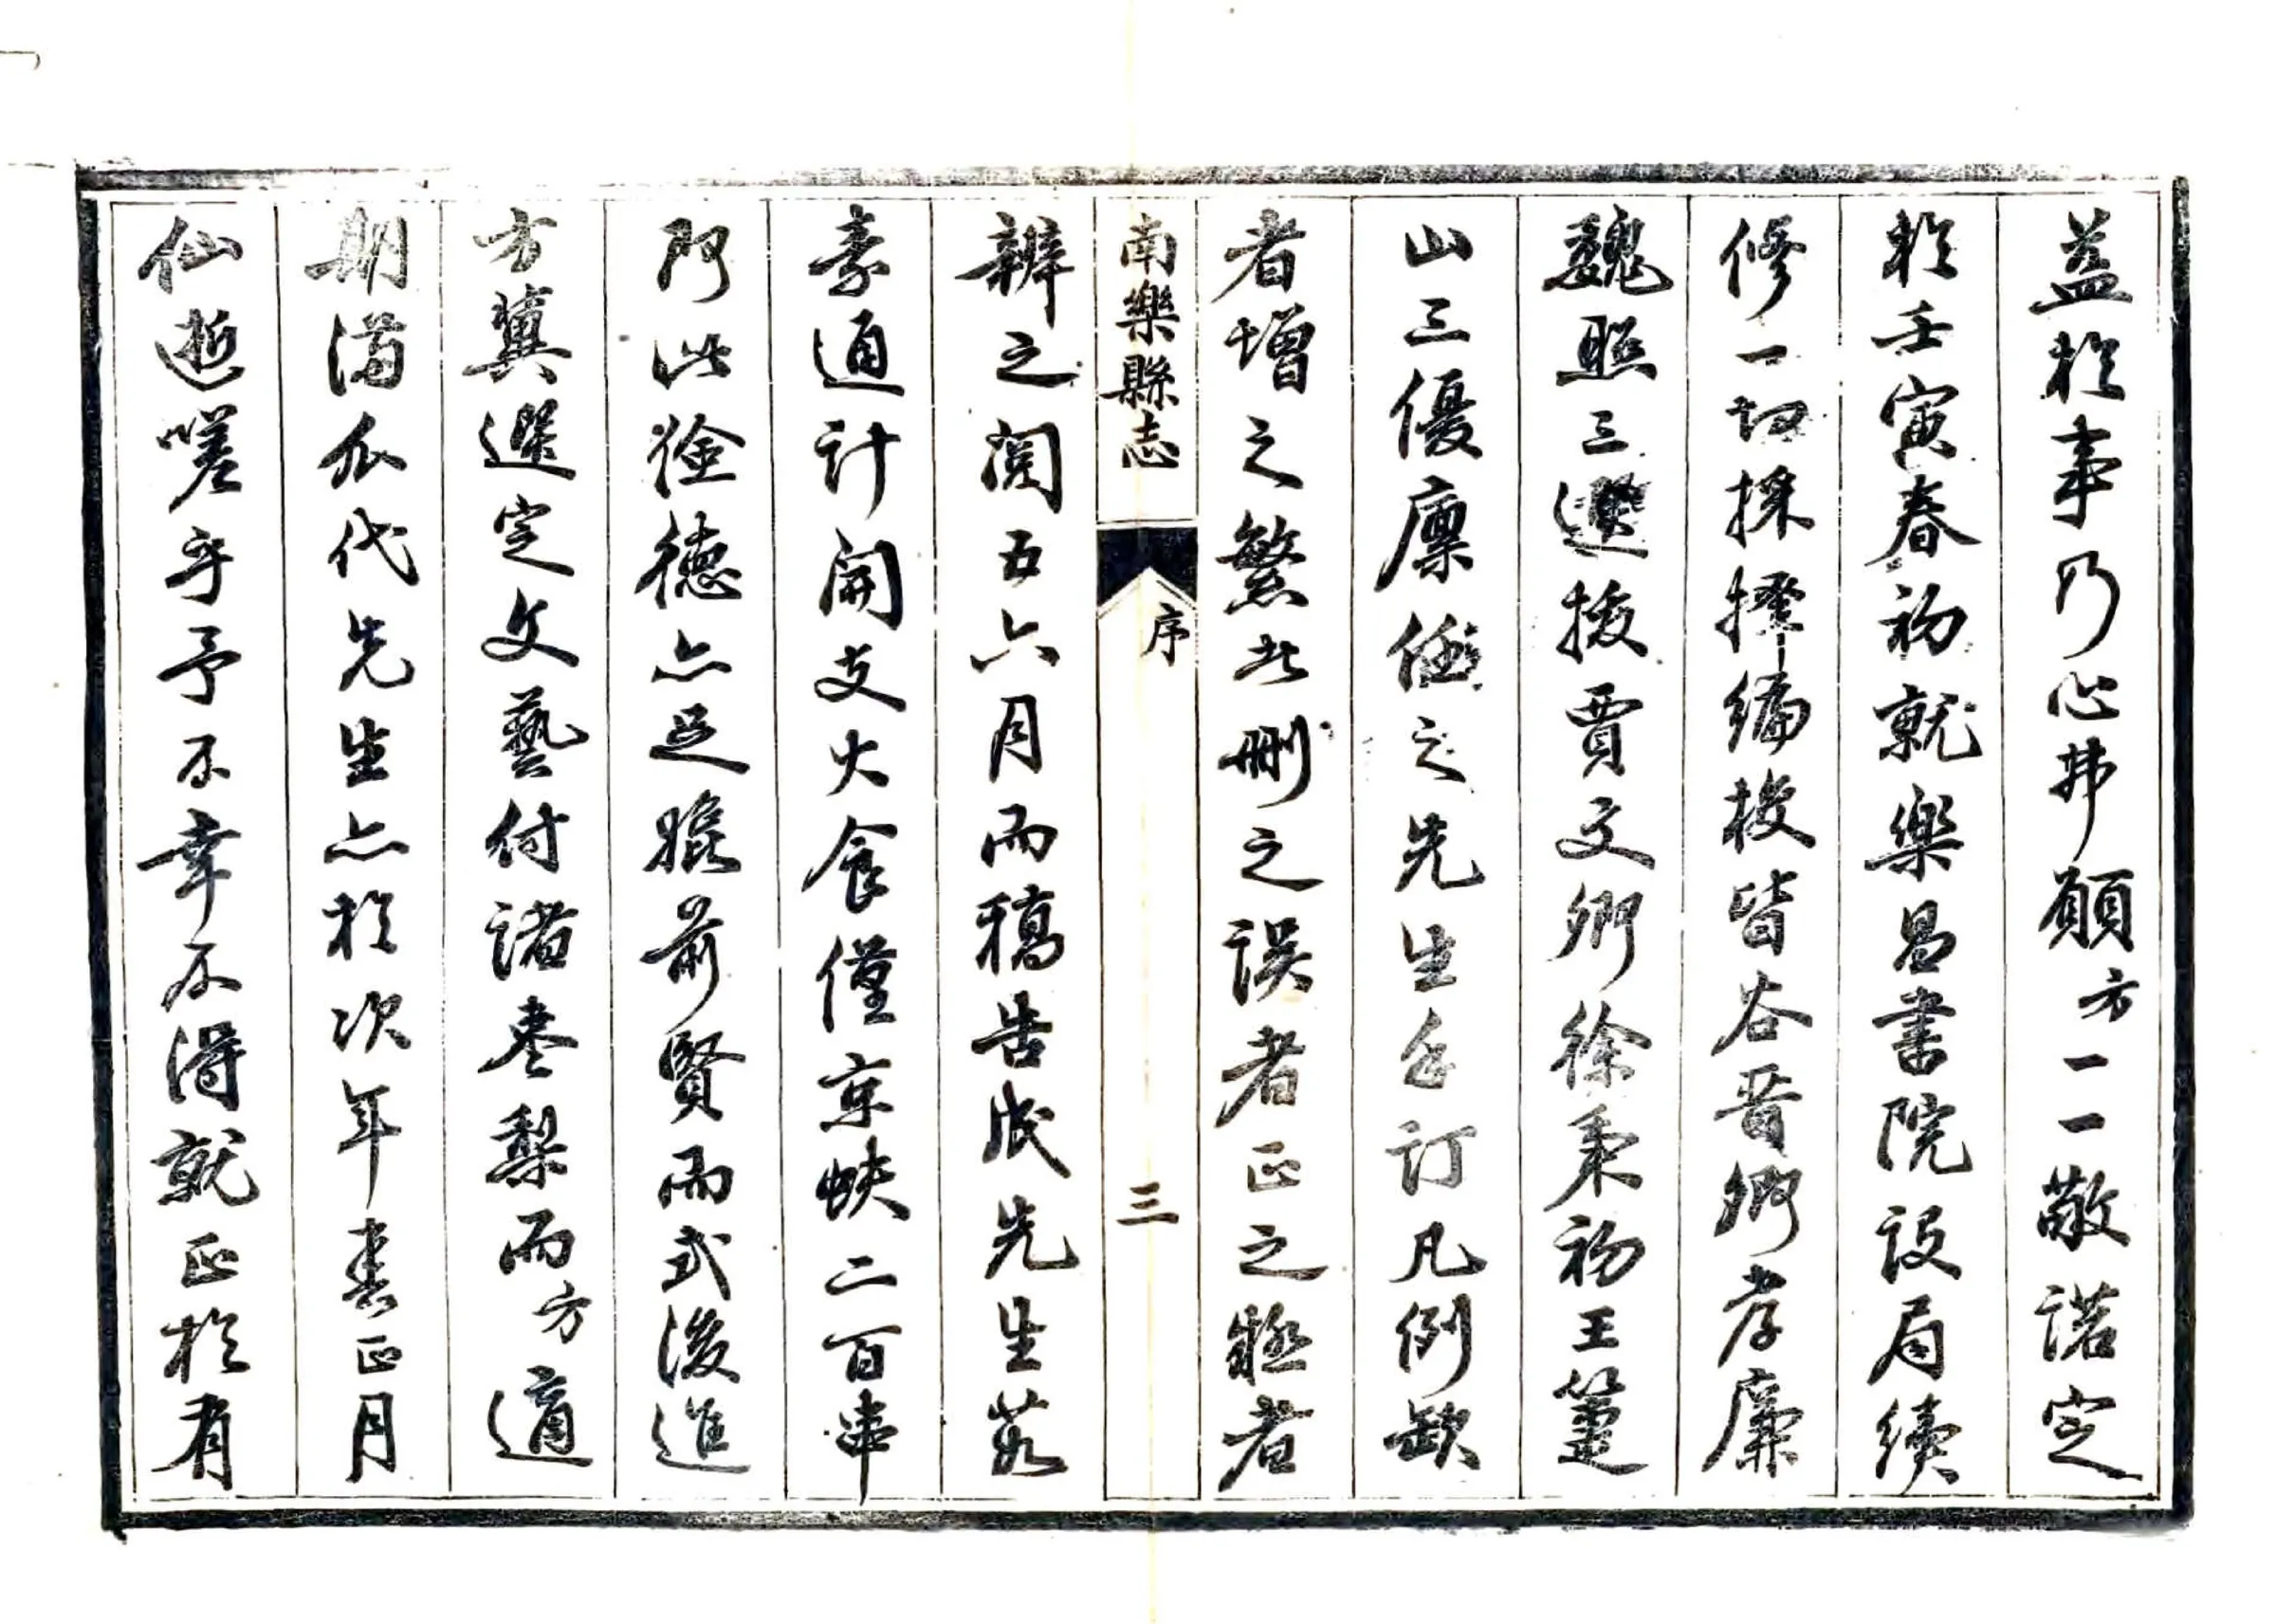 益於事乃心弗願方一一敬諾定
於壬寅春初就樂昌書院設局續
修一切採擇編校皆谷晋卿孝廉
魏照三選拔賈文卿徐秉初王篷
山三優廩任之先生手訂凡例缺
者增之繁者刪之誤者正之疑者
南樂縣志
序
三
辨之閱五六月而稿告成先生若
豪通計開支火食僅京蚨二百串
所此儉德亦足繼前賢而式後進
方冀選定文藝付諸棗梨而方適
期滿瓜代先生亦於次年春正月
仙逝嗟乎予不幸不得就正於有